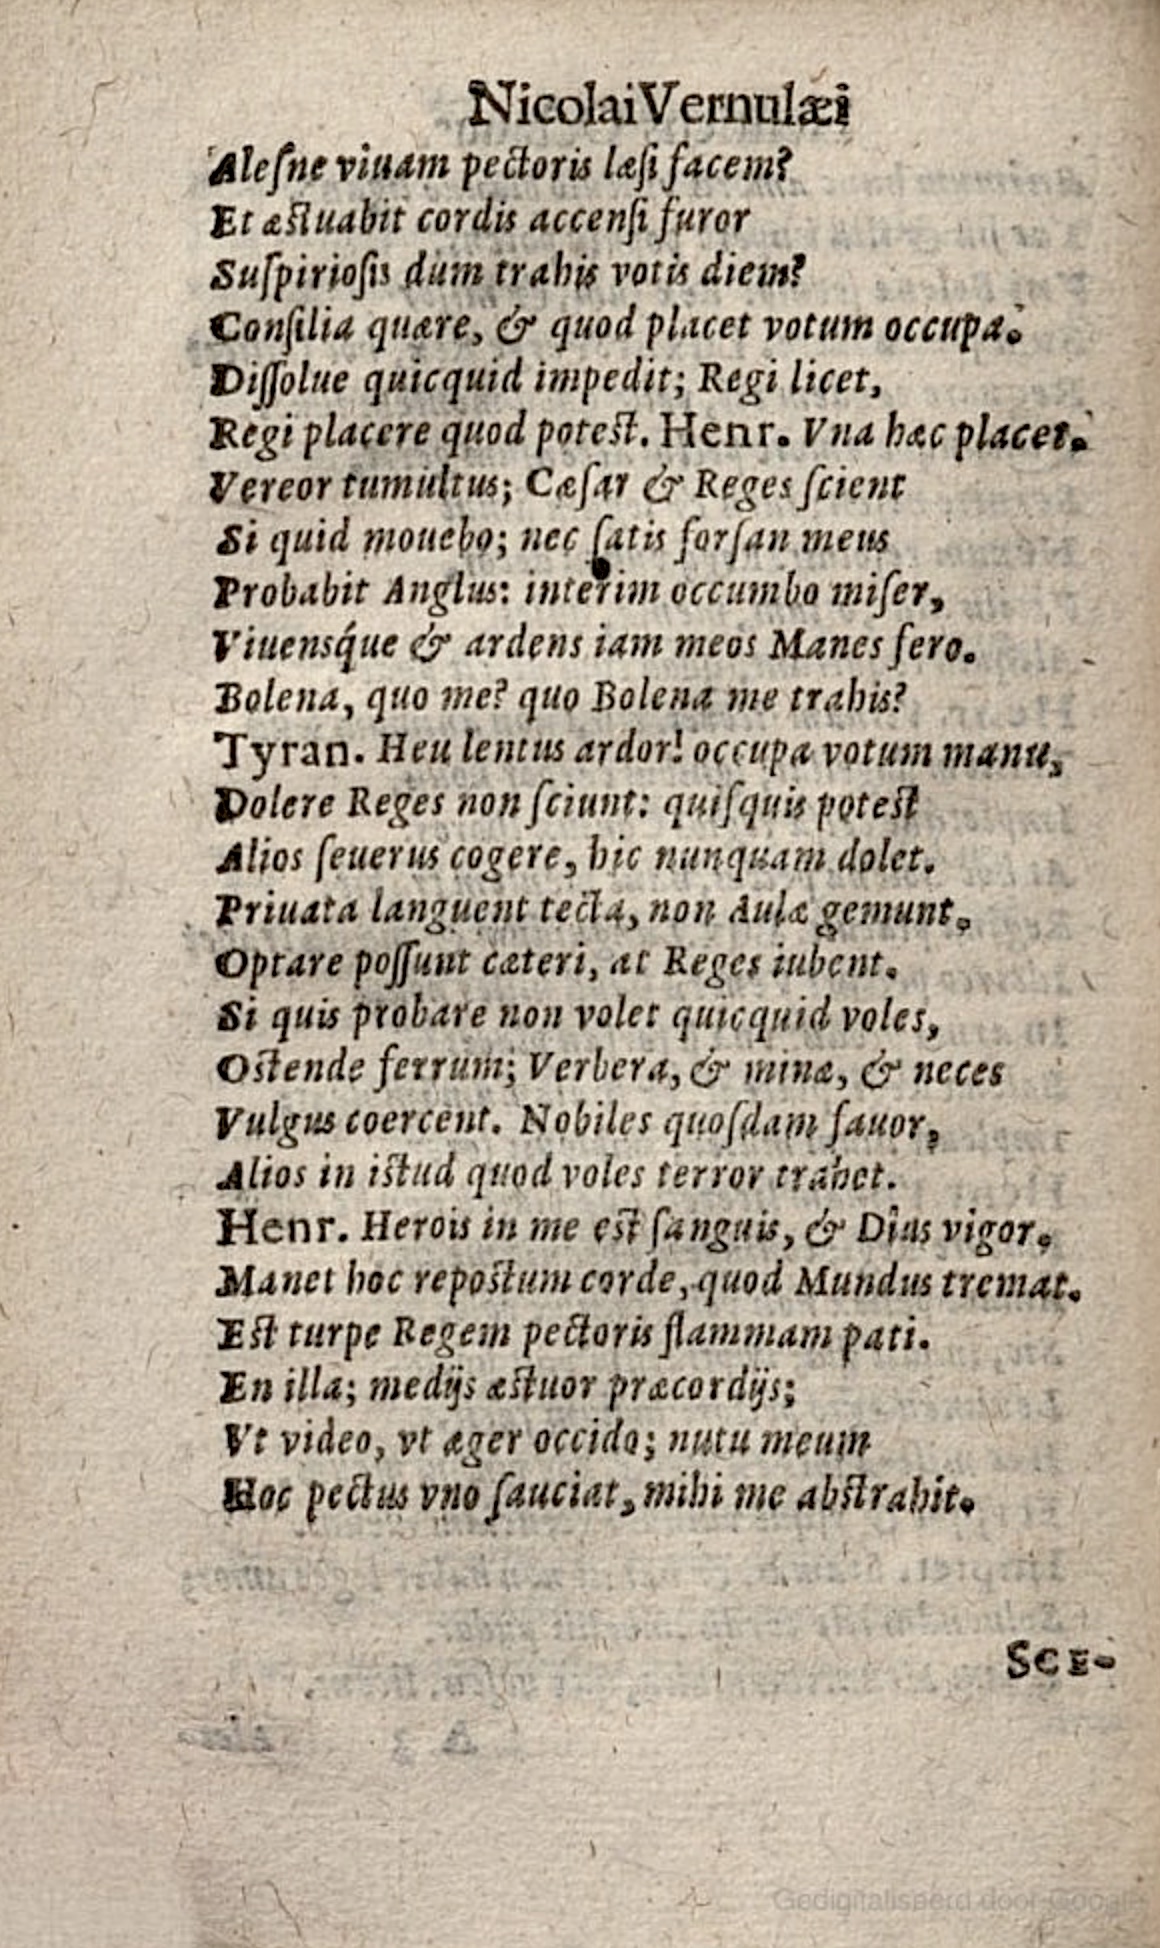 Nicolai Vernulæi
Aleſne viuam pectoris læſi facem?
Et æſtuabit cordis accenſi furor
Suſpirioſis dum trahis votis diem?
Conſilia quære, & quod placet votum occupa.
Diſſolue quicquid impedit; Regi licet,
Regi placere quod poteſt. Henr. Vna hæc placet.
Vereor tumultus; Cæſar & Reges ſcient
Si quid mouebo; nec ſatis forſan meus
Probabit Anglus: interim occumbo miſer,
Viuensq́ue & ardens iam meos Manes fero.
Bolena, quo me? quo Bolena me trahis?
Tyran. Heu lentus ardor! occupa votum manu,
Dolere Reges non ſciunt: quiſquis poteſt
Alios ſeuerus cogere, hic nunquam dolet.
Priuata languent tecta, non Aulæ gemunt.
Optare poſſunt cæteri, at Reges iubent.
Si quis probare non volet quicquid voles,
Oſtende ferrum; Verbera, & minæ, & neces
Vulgus coercent. Nobiles quoſdam fauor,
Alios in iſtud quod voles terror trahet.
Henr. Herois in me eſt ſanguis, & Dius vigor.
Manet hoc repoſtum corde, quod Mundus tremat.
Eſt turpe Regem pectoris flammam pati.
En illa; medijs æſtuor præcordijs;
Vt video, vt æger occido; nutu meum
Hoc pectus vno ſauciat, mihi me abſtrahit.
SCE-
Gedigitaliseerd door Google